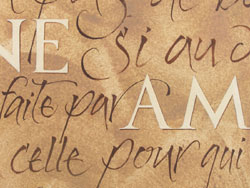 de
NE si au d
faite par AM
celle pour qui